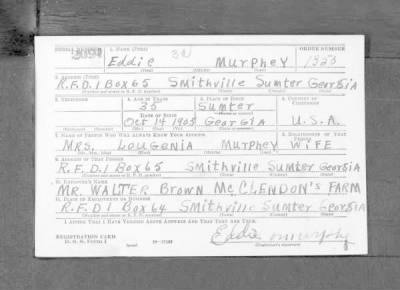 SERIAL NUMBER 1. NAME (Print) ORDER NUMBER
Eddie Murphey 1325
(First) (Middle) (Last)
2. ADDRESS (Print)
R.F.D. 1 Box 65 Smithville Sumter Georgia
3. TELEPHONE 4. AGE IN YEARS 5. PLACE OF BIRTH 6. COUNTRY OF
35 Sumter
DATE OF BIRTH
Oct 14 1905 Georgia U.S.A.
7. NAME OF PERSON WHO WILL ALWAYS KNOW YOUR ADDRESS 8. RELATIONSHIP OF THAT
MRS. Lougenia Murphey Wife
9. ADDRESS OF THAT PERSON
R.F.D. 1 Box 65 Smithville Sumter Georgia
10. EMPLOYER'S NAME
MR. WALTER Brown McCLENDON'S FARM
11. PLACE OF EMPLOYMENT OR BUSINESS
R.F.D. 1 Box 64 Smithville Sumter Georgia
I AFFIRM THAT I HAVE VERIFIED ABOVE ANSWERS AND THAT THEY ARE TRUE.
REGISTRATION CARD
D. S. S. FORM 1
Eddie Murphy